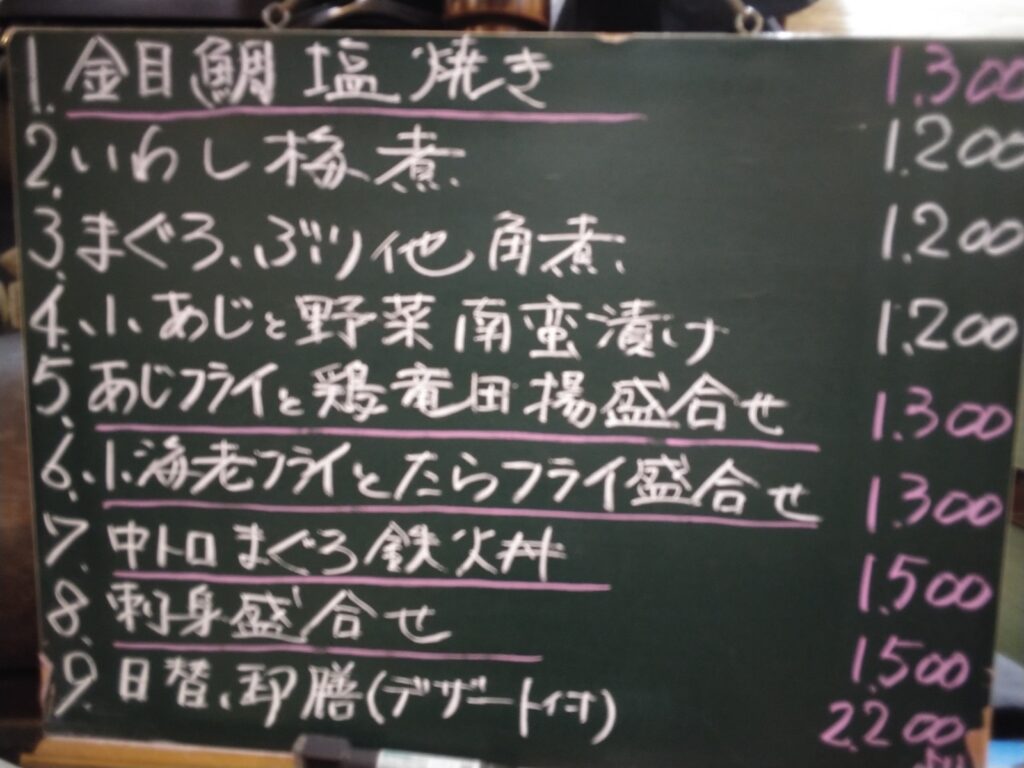 1. 金目鯛塩焼き 1.300
2. いわし梅煮 1.200
3. まぐろ、ぶり他角煮 1.200
4. 小あじと野菜南蛮漬け 1.200
5. あじフライと鶏竜田揚盛合せ 1.300
6. 小海老フライとたらフライ盛合せ 1.300
7. 中トロまぐろ鉄火丼 1.500
8. 刺身盛合せ 1.500
9. 日替、御膳(デザート付) 2.200